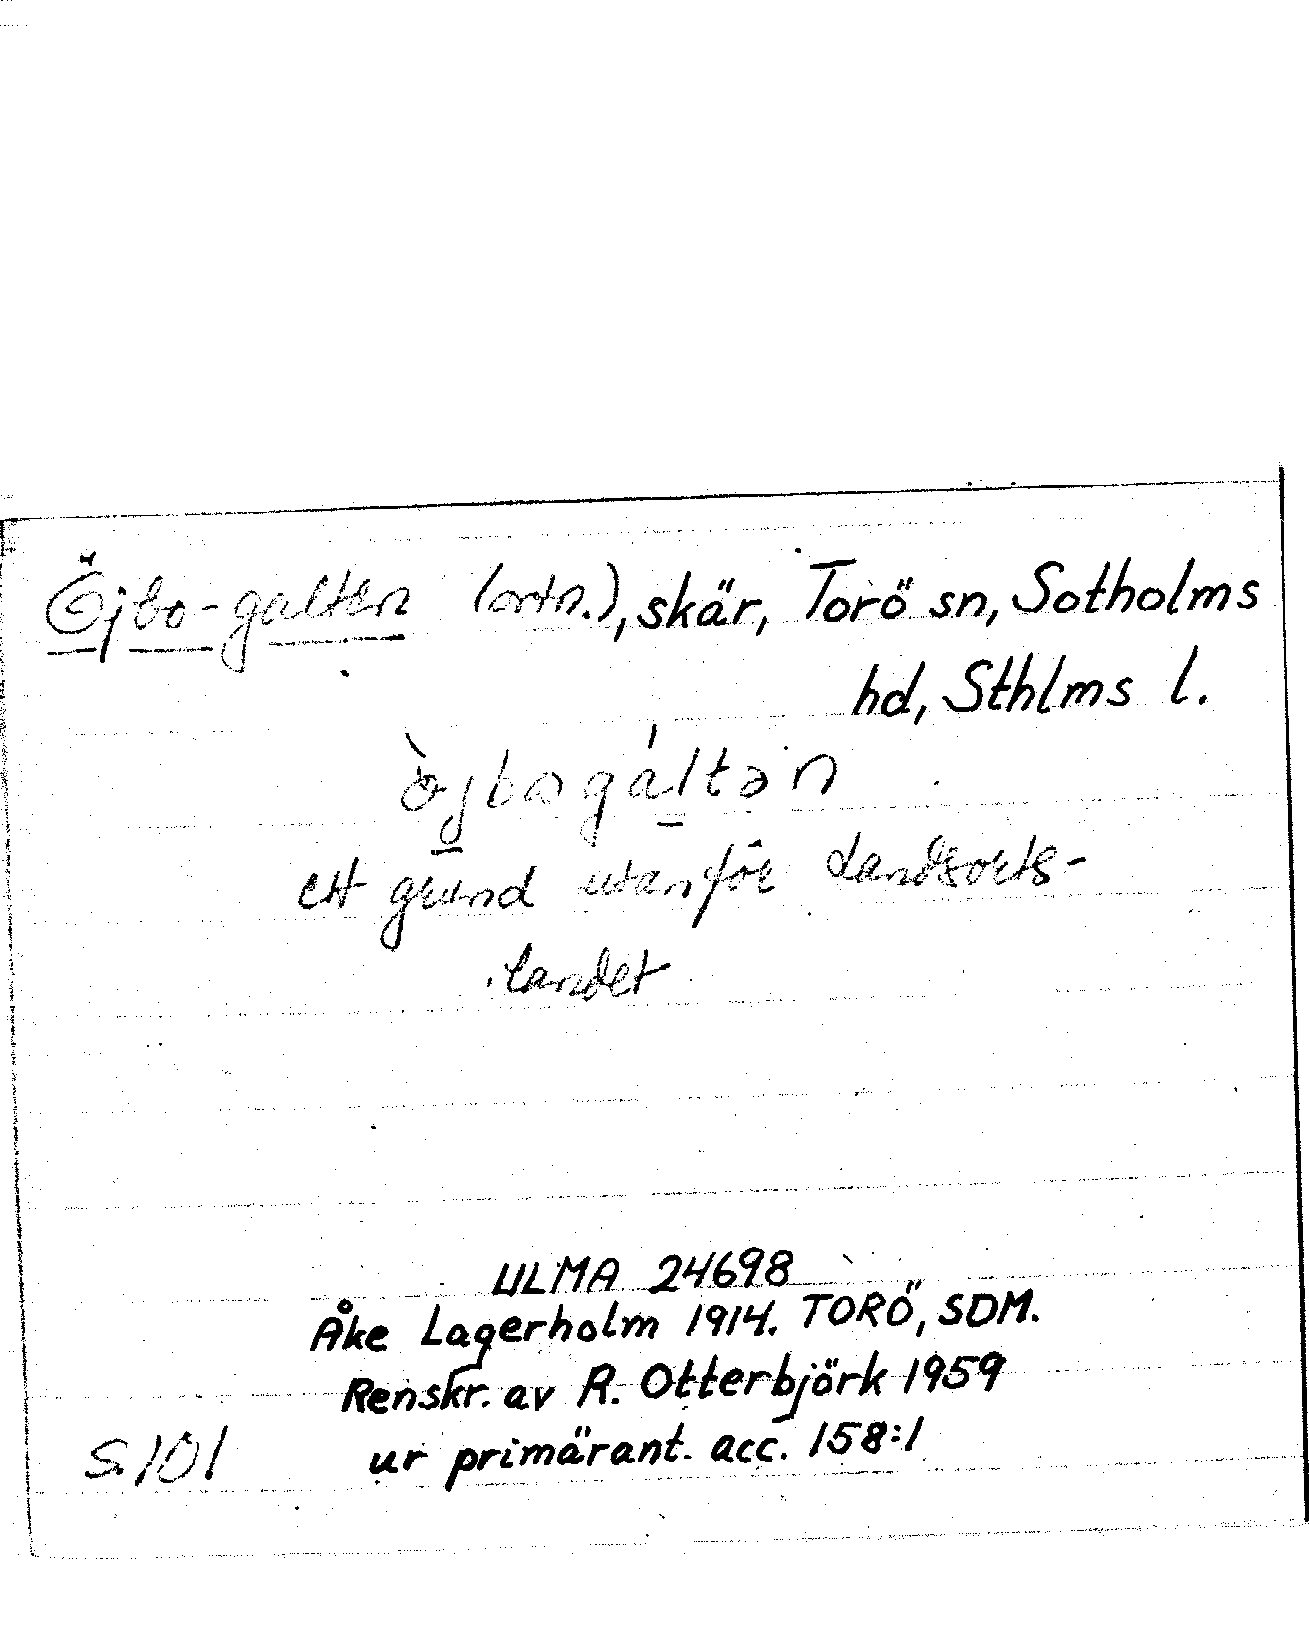 Öjbo-galten (ortn.), skär, Torö sn, Sotholms
hd, Sthlms l.
ö̀jbogáltən
ett grund utanför Landsorts-
landet
ULMA 24698
Åke Lagerholm 1914. TORÖ, SDM.
Renskr. av R. Otterbjörk 1959
ur primärant. acc. 158:1
S. 101